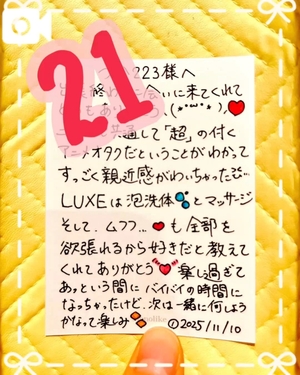 21
223様へ
会いに来てくれて
共通して「超」の付く
アニメオタクだということがわかって
すっごく親近感がわいちゃった
LUXEは泡洗体とマッサージ
そして、ムフフ…❤も全部を
欲張れるから好きだと教えて
くれてありがとう 楽し過ぎて
あっという間にバイバイの時間に
なっちゃったけど、次は一緒に何しよう
かなって楽しみ
©2025/11/10